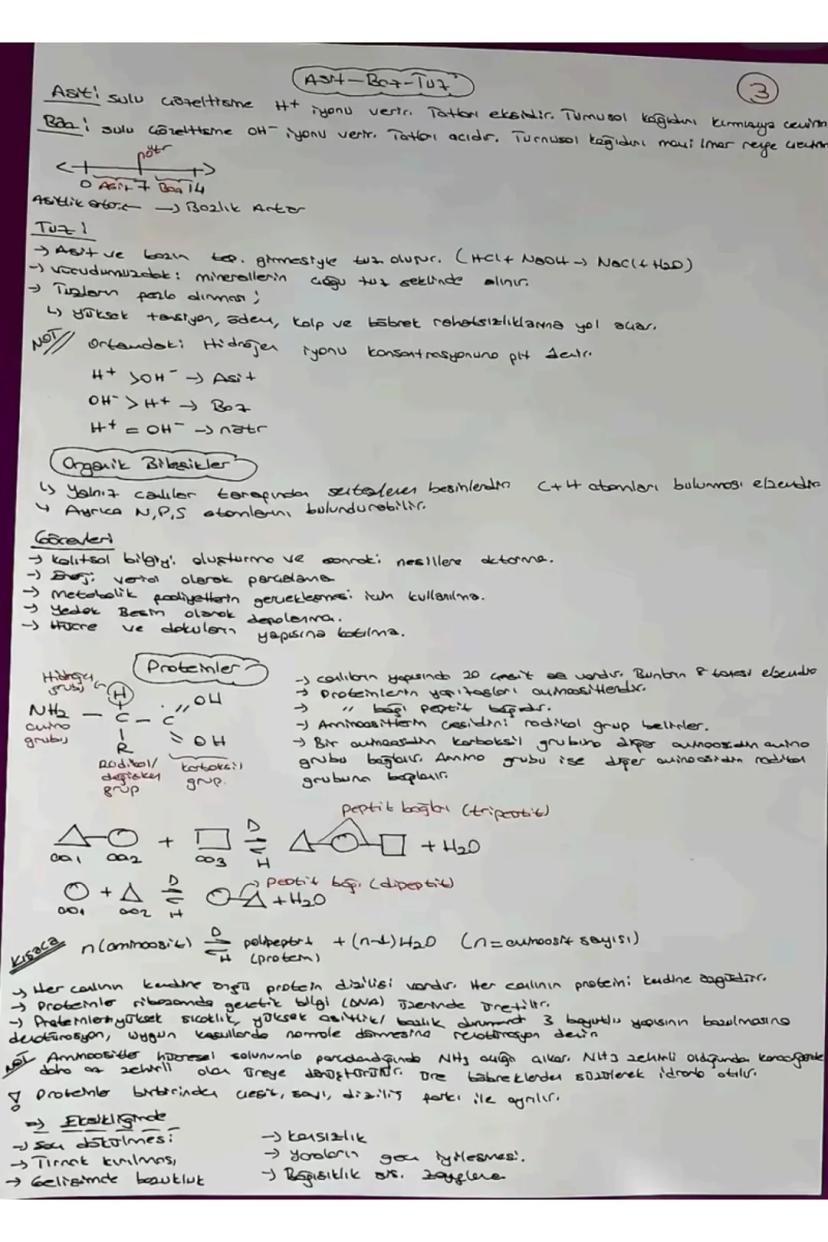 Asit-Baz-Tuz
3
Asit: sulu çözeltisine H+ iyonu verir. Tatları ekşidir. Turnusol kağıdını kırmızıya çevirir
Baz: sulu çözeltisine OH- iyonu verir. Tatları acıdır. Turnusol kağıdını mavi renge
nötr
0 Asit 7 Baz 14
Asitlik artar ← → Bazlık Artar
Tuz:
→ Asit ve bazın tep. girmesiyle tuz oluşur. (HCl + NaOH → NaCl + H2O)
→ vücudumuzdaki minerallerin çoğu tuz şeklinde alınır.
→ Tuzların fazla alınması;
↳ yüksek tansiyon, ödem, kalp ve böbrek rahatsızlıklarına yol açar.
NOT// Ortamdaki Hidrojen iyonu konsantrasyonuna pH denir.
H+ > OH- → Asit
OH- > H+ → Baz
H+ = OH- → nötr
Organik Bileşikler
↳ Yalnız canlılar tarafından sentezlenen besinlerdir C+H atomları bulunması
↳ Ayrıca N,P,S atomlarını bulundurabilir.
Görevleri
→ Kalıtsal bilgiyi oluşturma ve sonraki nesillere aktarma.
→ Enerji verici olarak parçalanma
→ Metabolik faaliyetlerin gerçekleşmesi için kullanılma.
→ Yedek Besin olarak depolanma.
→ Hücre ve dokuların yapısına katılma.
Proteinler
Hidrojen grubu
H
NH2 — C — C
OH
OH
R
amino grubu
Radikal/ değişken grup
karboksil grup.
→ canlıların yapısında 20 çeşit aa vardır. Bunların 8 tanesi
→ Proteinlerin yapıtaşları aminoasitlerdir.
→ " bağı peptit bağıdır.
→ Aminoasitlerin çeşidini radikal grup belirler.
→ Bir aminoasidin karboksil grubuna diğer aminoasidin amino
grubu bağlanır. Amino grubu ise diğer aminoasidin radikal
grubuna bağlanır.
peptit bağları (tripeptit)
aa1 aa2 + aa3 D ⇌ H + H2O
aa1 + aa2 D ⇌ H + H2O
→ Peptit bağı (dipeptit)
Kısaca n(aminoasit) D ⇌ H polipeptit + (n-1)H2O (n = aminoasit sayısı)
(protein)
→ Her canlının kendine özgü protein dizilişi vardır. Her canlının proteini kendine özgüdür.
→ Proteinler ribozomda genetik bilgi (DNA) üzerinde üretilir.
→ Proteinlerin yüksek sıcaklık, yüksek asitlik/bazlık durumunda 3 boyutlu yapısının bozulmasına
denatürasyon, uygun koşullarda normale dönmesine renatürasyon denir
NOT Aminoasitler hücresel solunumla parçalandığında NH3 açığa çıkar. NH3 zehirli olduğundan karaciğerde
daha az zehirli olan üreye dönüştürülür. Üre böbreklerden süzülerek idrarla atılır.
! Proteinler birbirinden çeşit, sayı, diziliş farkı ile ayrılır.
⇒ Eksikliğinde
→ Saç dökülmesi
→ Tırnak kırılması,
→ Gelişimde bozukluk
→ kansızlık
→ yaraların geç iyileşmesi.
→ Bağışıklık sis. zayıflama